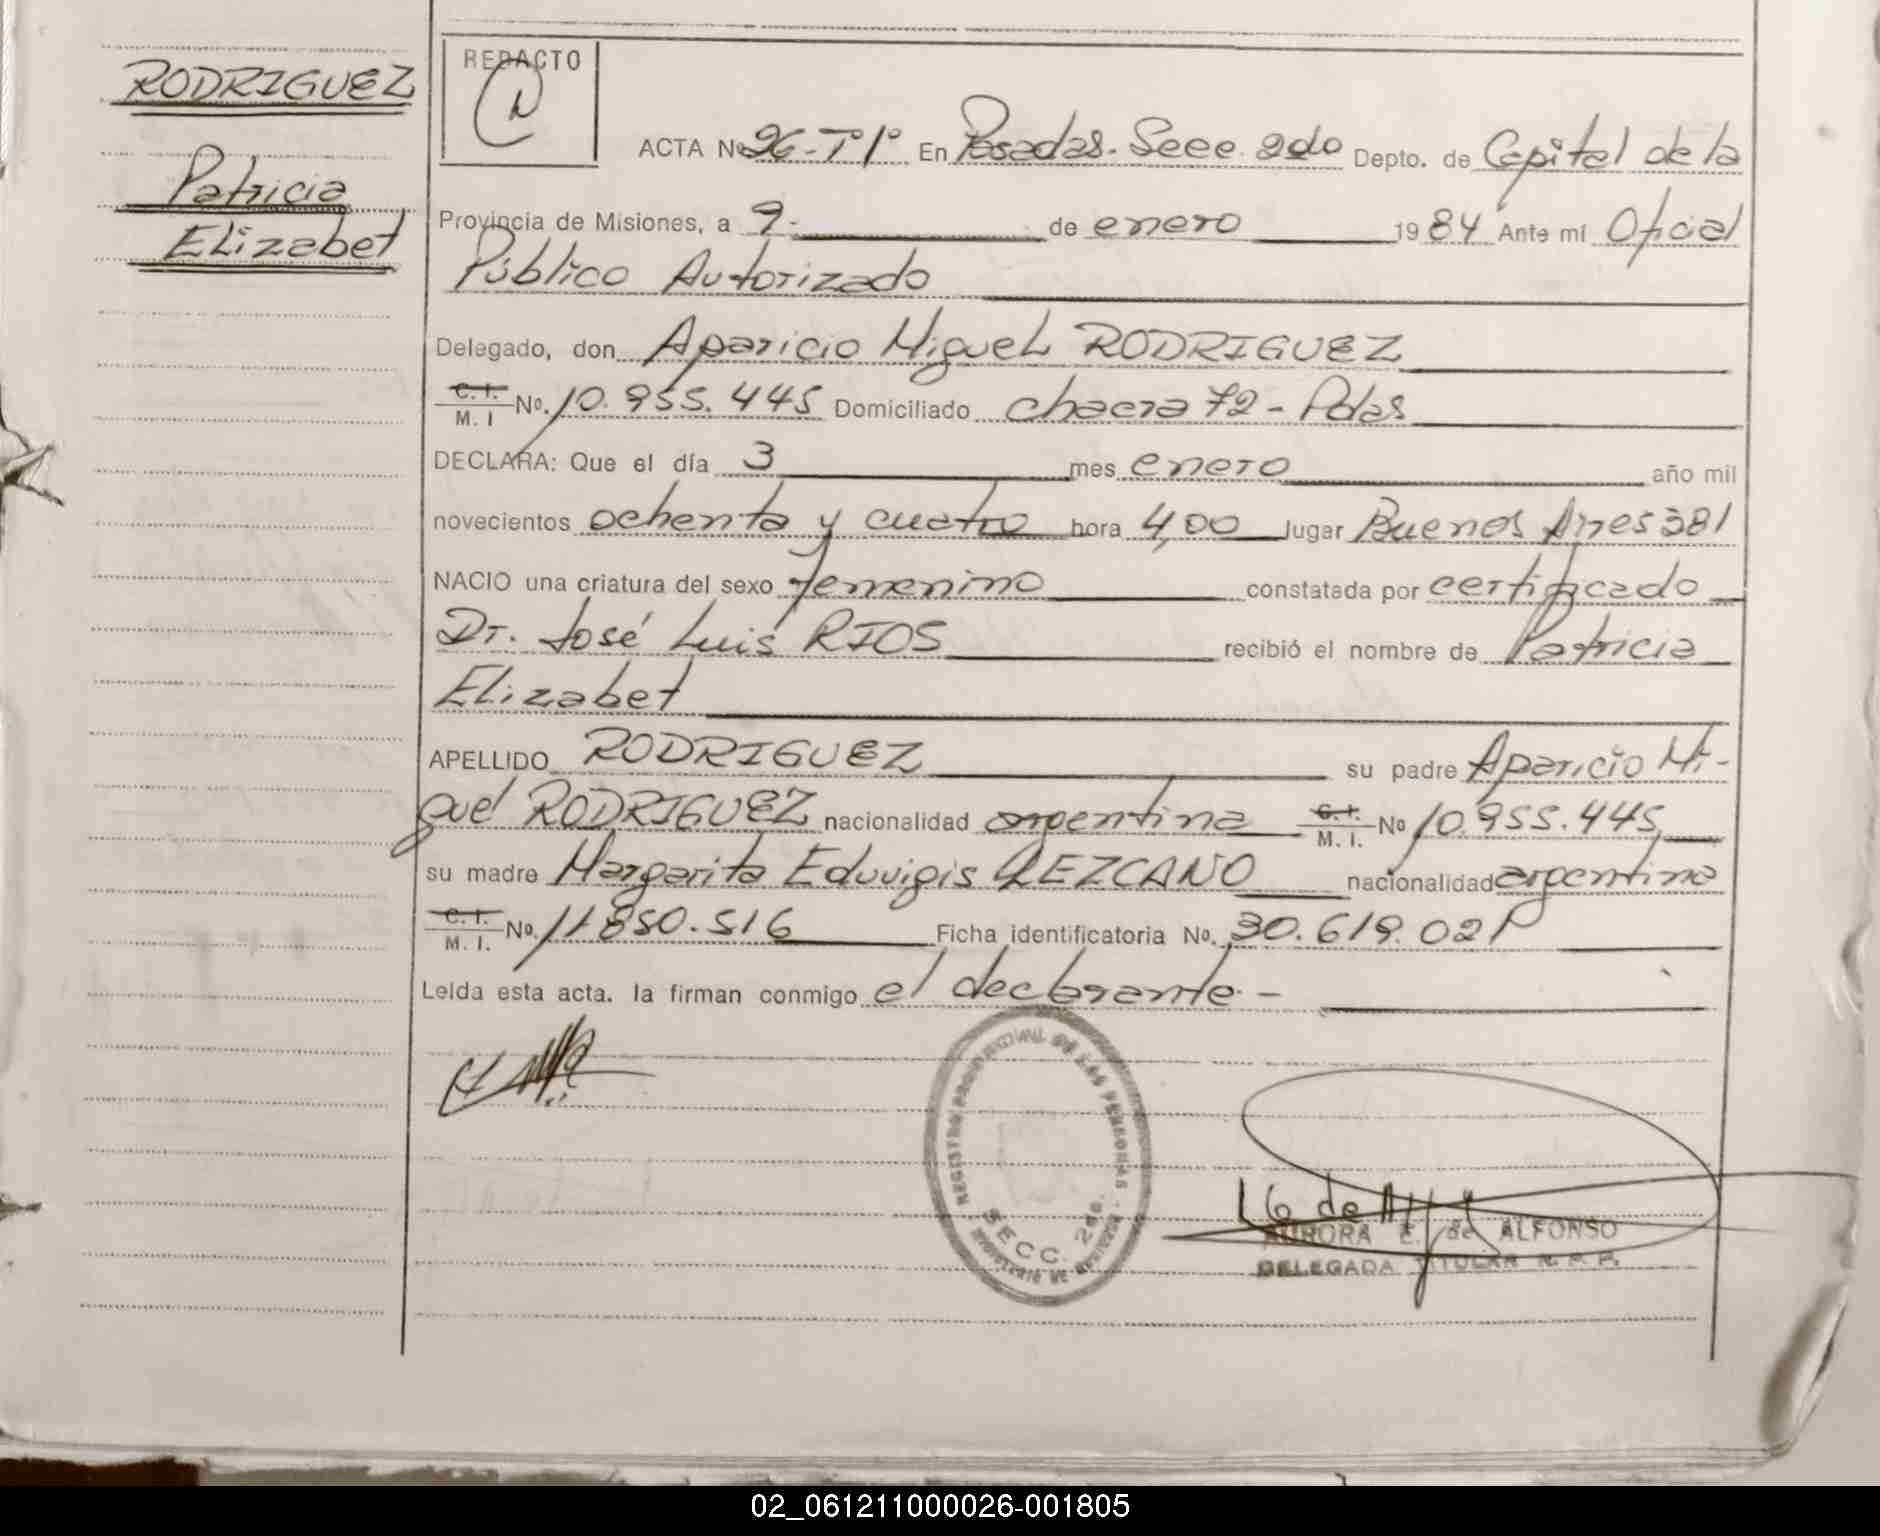 RODRIGUEZ
Patricia
Elizabet
REDACTO
ACTA Nº 26-Tº1º En Posadas. Secc. 2do Depto. de Capital de la
Provincia de Misiones, a 9- de enero 1984 Ante mí Oficial
Público Autorizado
Delegado, don Aparicio Miguel RODRIGUEZ
C. I. M. I No. 10.955.445 Domiciliado chacra 72 - Pdas
DECLARA: Que el día 3 mes enero año mil
novecientos ochenta y cuatro hora 4,00 lugar Buenos Aires 381
NACIO una criatura del sexo femenino constatada por certificado
Dr. José Luis RIOS recibió el nombre de Patricia
Elizabet
APELLIDO RODRIGUEZ su padre Aparicio Mi-
guel RODRIGUEZ nacionalidad argentina C. I. M. I. No 10.955.445,
su madre Margarita Eduvigis LEZCANO nacionalidad argentina
C. I. M. I. No. 11.850.516 Ficha identificatoria No. 30.619.021
Leída esta acta. la firman conmigo el declarante -
REGISTRO PROVINCIAL DE LAS PERSONAS
SECC. 2da.
PROVINCIA DE MISIONES
AURORA E. de ALFONSO
DELEGADA TITULAR R. P. P.
02_061211000026-001805